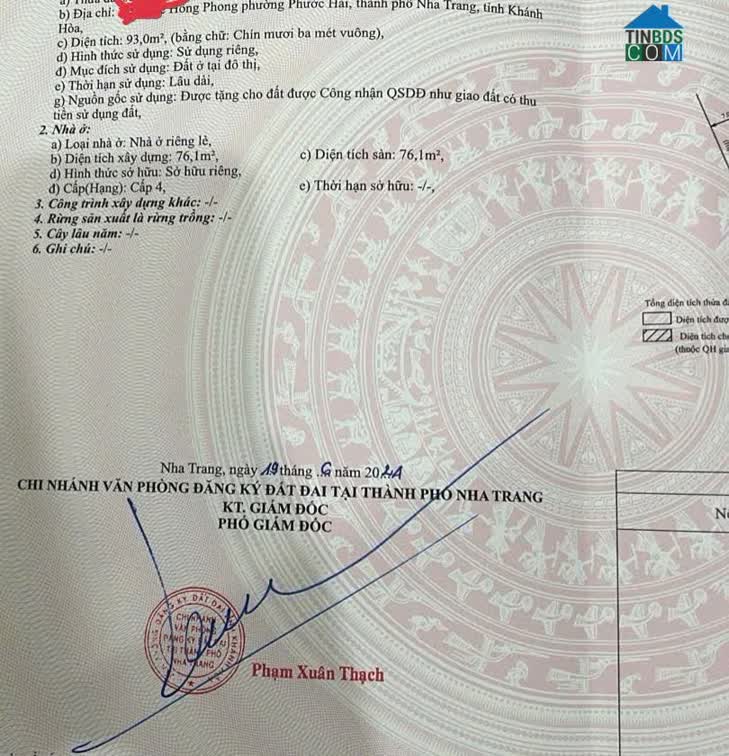 b) Địa chỉ: Hồng Phong phường Phước Hải, thành phố Nha Trang, tỉnh Khánh
Hòa,
c) Diện tích: 93,0m², (bằng chữ: Chín mươi ba mét vuông),
d) Hình thức sử dụng: Sử dụng riêng,
đ) Mục đích sử dụng: Đất ở tại đô thị,
e) Thời hạn sử dụng: Lâu dài,
g) Nguồn gốc sử dụng: Được tặng cho đất được Công nhận QSDĐ như giao đất có thu
tiền sử dụng đất,
2. Nhà ở:
a) Loại nhà ở: Nhà ở riêng lẻ,
b) Diện tích xây dựng: 76,1m², c) Diện tích sàn: 76,1m²,
d) Hình thức sở hữu: Sở hữu riêng,
đ) Cấp(Hạng): Cấp 4, e) Thời hạn sở hữu: -/-,
3. Công trình xây dựng khác: -/-
4. Rừng sản xuất là rừng trồng: -/-
5. Cây lâu năm: -/-
6. Ghi chú: -/-
TINBDS
COM
Tổng diện tích thửa
Diện tích
Diện tích
(thuộc QH
Nha Trang, ngày 19 tháng năm 2021
CHI NHÁNH VĂN PHÒNG ĐĂNG KÝ ĐẤT ĐAI TẠI THÀNH PHỐ NHA TRANG
KT. GIÁM ĐỐC
PHÓ GIÁM ĐỐC
CHI NHÁNH
VĂN PHÒNG
ĐĂNG KÝ
TẠI THÀNH PHỐ
NHA TRANG
Phạm Xuân Thạch